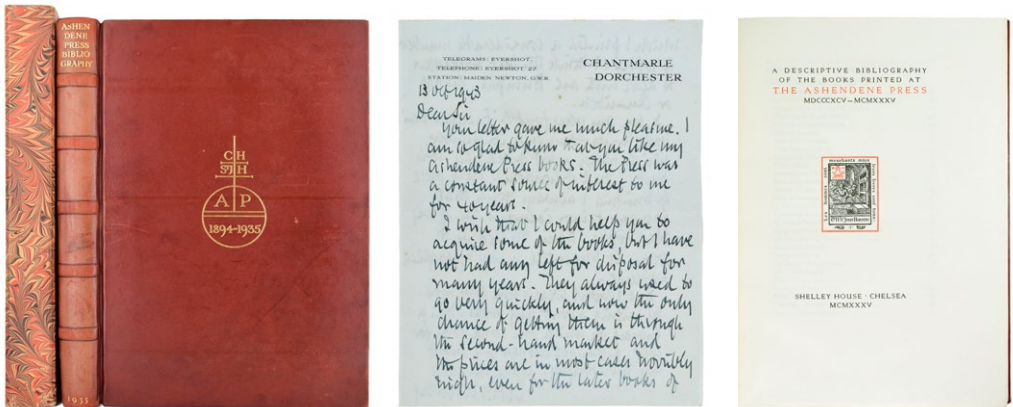 ASHEN
DENE
PRESS
BIBLIO
GRAPHY
1935
C H
ST J H
A P
1894-1935
TELEGRAMS: EVERSHOT.
TELEPHONE: EVERSHOT. 22.
STATION: MAIDEN NEWTON, G.W.R.
CHANTMARLE
DORCHESTER
13 Oct 1943
Dear Sir
Your letter gave me much pleasure. I
am so glad to know that you like my
Ashendene Press books. The Press was
a constant source of interest to me
for 40 years.
I wish that I could help you to
acquire some of the books, but I have
not had any left for disposal for
many years. They always used to
go very quickly, and now the only
chance of getting them is through
the second-hand market and
the prices are in most cases horribly
high, even for the later books of
A DESCRIPTIVE BIBLIOGRAPHY
OF THE BOOKS PRINTED AT
THE ASHENDENE PRESS
MDCCCXCV–MCMXXXV
SHELLEY HOUSE · CHELSEA
MCMXXXV